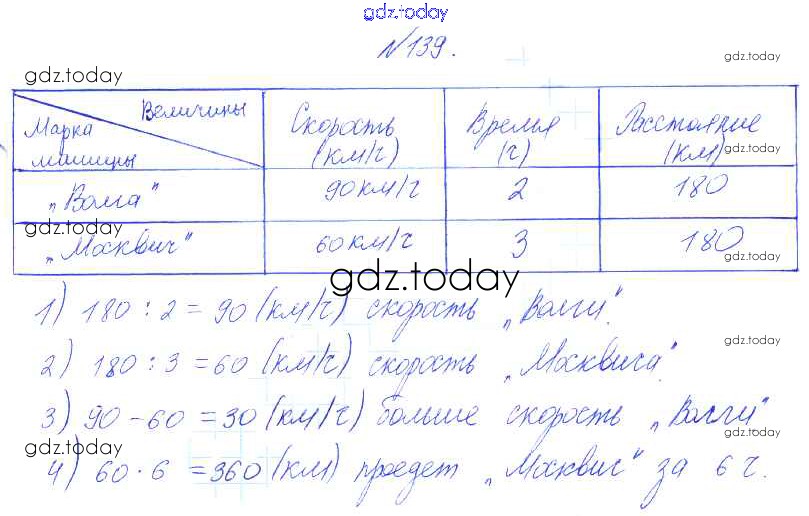 gdz.today
№139.
gdz.today
gdz.today
Величины
Марка машины
Скорость (км/ч)
Время (ч)
Расстояние (км)
gdz.today
„Волга" 90 км/ч 2 180
gdz.today
gdz.today
„Москвич" 60 км/ч 3 180
gdz.today
gdz.today
1) 180 : 2 = 90 (км/ч) скорость „Волги".
gdz.today
2) 180 : 3 = 60 (км/ч) скорость „Москвича".
3) 90 - 60 = 30 (км/ч) больше скорость „Волги"
gdz.today
gdz.today
4) 60 · 6 = 360 (км) проедет „Москвич" за 6 ч.